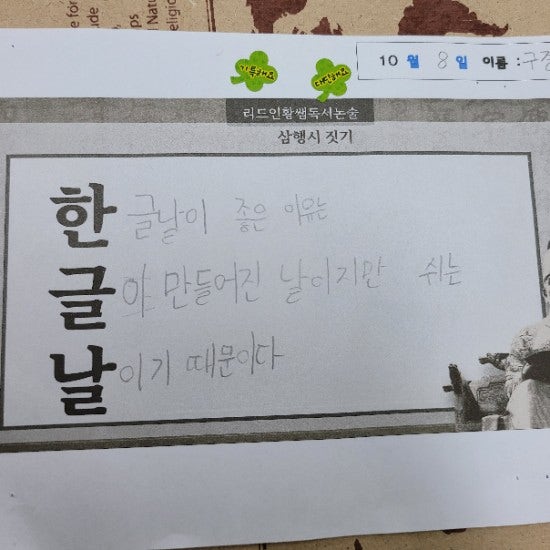 기특해요
대단해요
10 월 8 일 이름 : 구정
리드인황쌤독서논술
삼행시 짓기
한글날이 좋은 이유는
글야 만들어진 날이지만 쉬는
날이기 때문이다